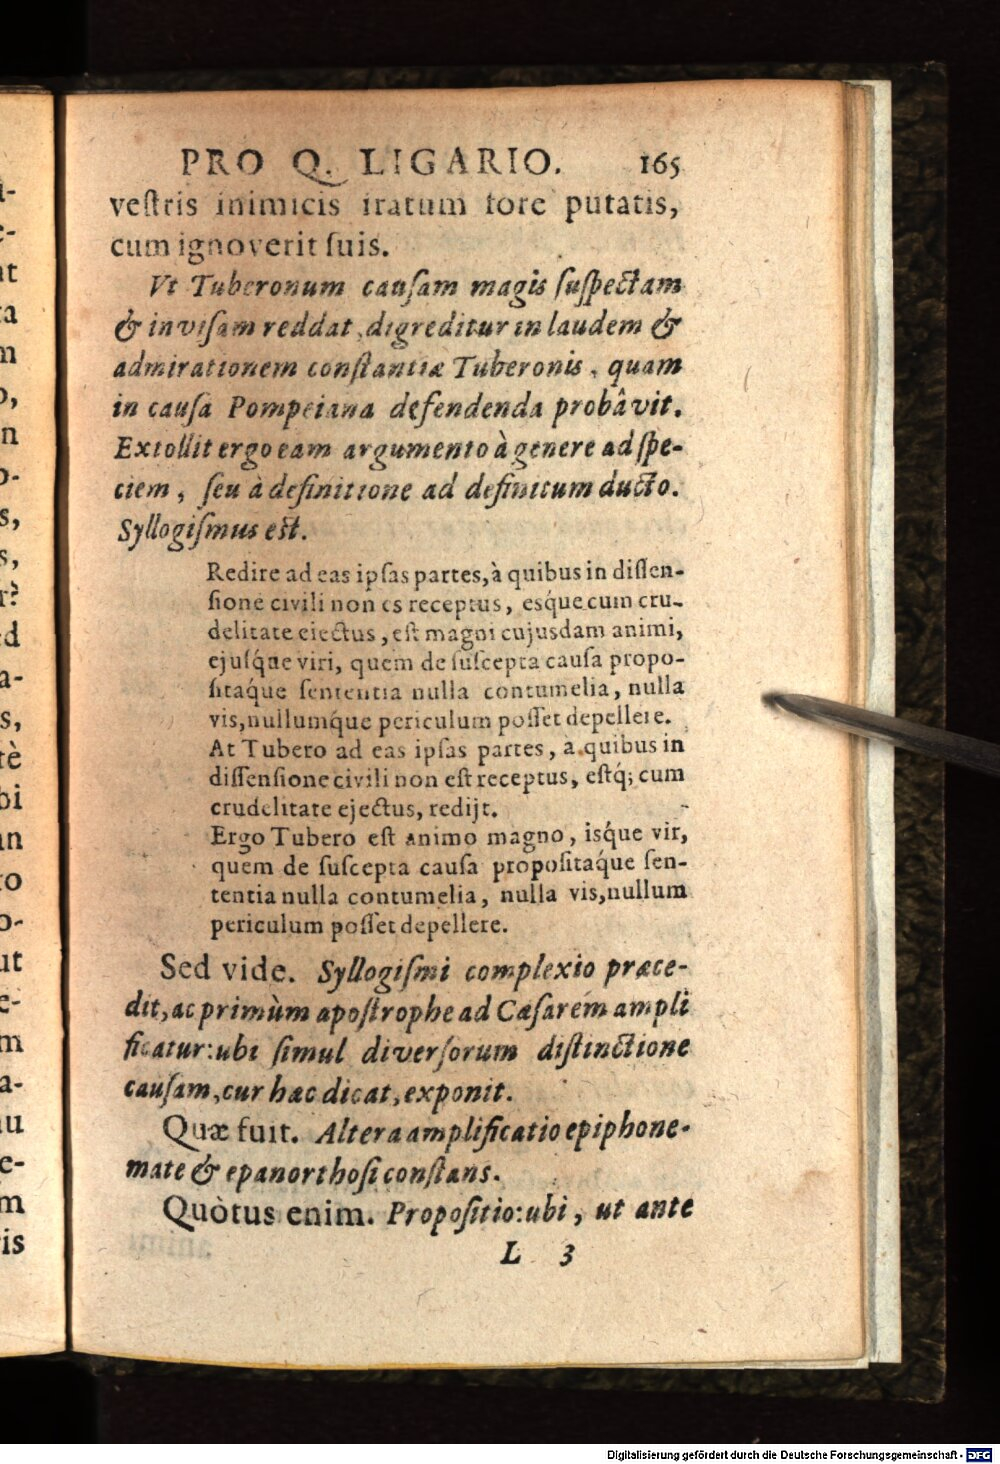 PRO Q. LIGARIO. 165
veſtris inimicis iratum fore putatis,
cum ignoverit ſuis.
Vt Tuberonum cauſam magis ſuſpectam
& inviſam reddat, digreditur in laudem &
admirationem conſtantiæ Tuberonis, quam
in cauſa Pompeiana defendenda probâvit.
Extollit ergo eam argumento à genere ad ſpe-
ciem, ſeu à definitione ad definitum ducto.
Syllogiſmus eſt.
Redire ad eas ipſas partes, à quibus in diſſen-
ſione civili non es receptus, eſque cum cru-
delitate eiectus, eſt magni cujusdam animi,
ejuſq́ue viri, quem de ſuſcepta cauſa propo-
ſitaq́ue ſententia nulla contumelia, nulla
vis, nullumq́ue periculum poſſet depellere.
At Tubero ad eas ipſas partes, à quibus in
diſſenſione civili non eſt receptus, eſtq́; cum
crudelitate ejectus, redijt.
Ergo Tubero eſt animo magno, isq́ue vir,
quem de ſuſcepta cauſa propoſitaq́ue ſen-
tentia nulla contumelia, nulla vis, nullum
periculum poſſet depellere.
Sed vide. Syllogiſmi complexio præce-
dit, ac primùm apoſtrophe ad Cæſarem ampli
ficatur: ubi ſimul diverſorum diſtinctione
cauſam, cur hæc dicat, exponit.
Quæ fuit. Altera amplificatio epiphone-
mate & epanorthoſi conſtans.
Quòtus enim. Propoſitio: ubi, ut ante
L 3
Digitalisierung gefördert durch die Deutsche Forschungsgemeinschaft - DFG